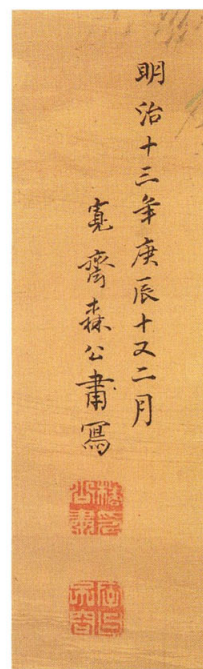 明治十三年庚辰十又二月
寛齋森公肅寫